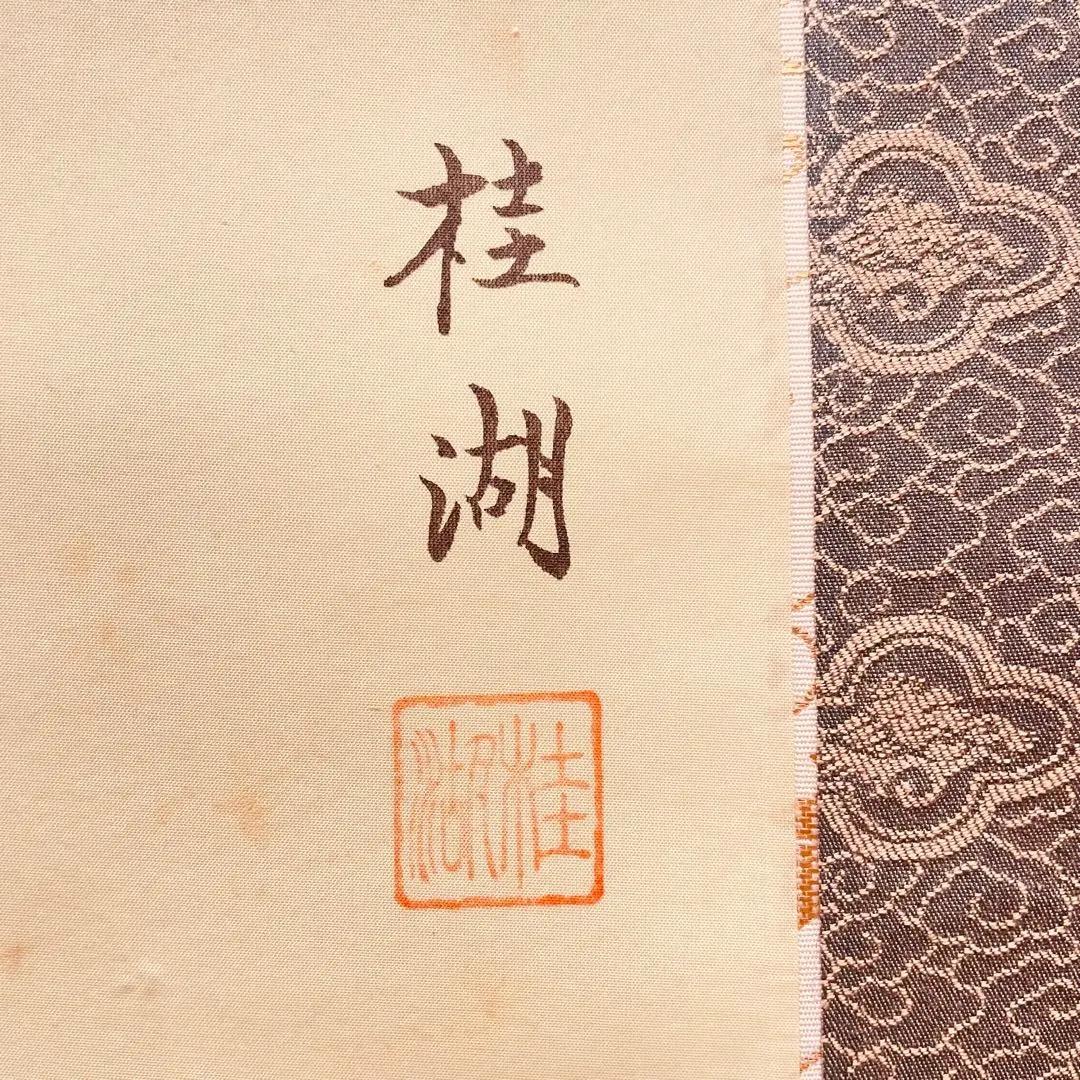 桂
湖
桂湖